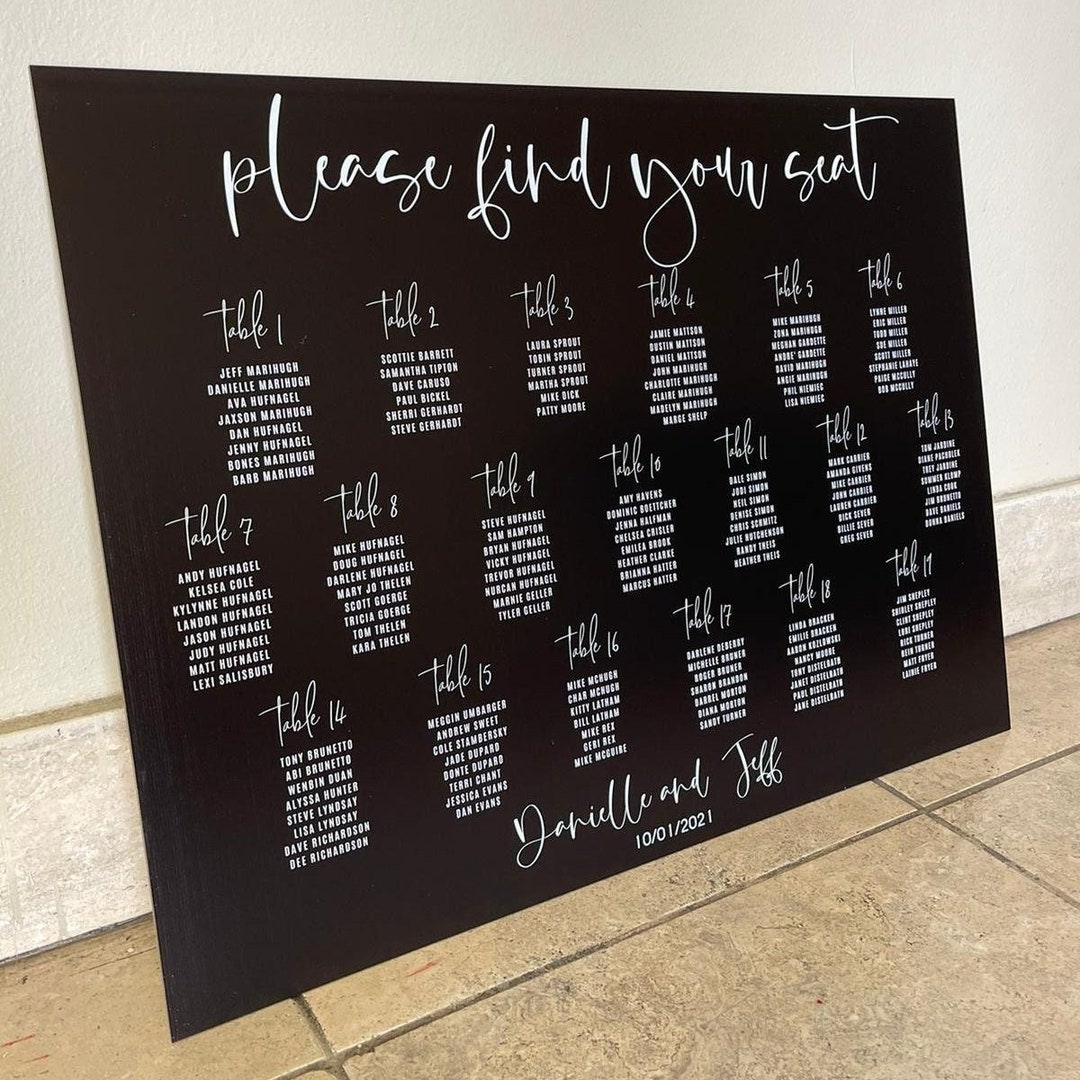 please find your seat
Table 1
JEFF MARIHUGH
DANIELLE MARIHUGH
AVA HUFNAGEL
JAXSON MARIHUGH
DAN HUFNAGEL
JENNY HUFNAGEL
BONES MARIHUGH
BARB MARIHUGH
Table 2
SCOTTIE BARRETT
SAMANTHA TIPTON
DAVE CARUSO
PAUL BICKEL
SHERRI GERHARDT
STEVE GERHARDT
Table 3
LAURA SPROUT
TOBIN SPROUT
TURNER SPROUT
MARTHA SPROUT
MIKE DICK
PATTY MOORE
Table 4
JAMIE MATTSON
DUSTIN MATTSON
DANIEL MATTSON
JOHN MARIHUGH
CHARLOTTE MARIHUGH
CLAIRE MARIHUGH
MADELYN MARIHUGH
MARGE SHELP
Table 5
MIKE MARIHUGH
ZONA MARIHUGH
MEGHAN GARDETTE
GARDETTE
DAVID MARIHUGH
ANGIE MARIHUGH
PHIL NIEMIEC
LISA NIEMIEC
Table 6
LYNNE MILLER
ERIC MILLER
TODD MILLER
SUE MILLER
SCOTT MILLER
STEPHANIE
PAIGE MCCULLY
BOB MCCULLY
Table 7
ANDY HUFNAGEL
KELSEA COLE
KYLYNNE HUFNAGEL
LANDON HUFNAGEL
JASON HUFNAGEL
JUDY HUFNAGEL
MATT HUFNAGEL
LEXI SALISBURY
Table 8
MIKE HUFNAGEL
DOUG HUFNAGEL
DARLENE HUFNAGEL
MARY JO THELEN
SCOTT GOERGE
TRICIA GOERGE
TOM THELEN
KARA THELEN
Table 9
STEVE HUFNAGEL
SAM HAMPTON
BRYAN HUFNAGEL
VICKY HUFNAGEL
TREVOR HUFNAGEL
HUFNAGEL
MARKIE GELLER
TYLER GELLER
Table 10
AMY HAVENS
DOMINIC BOETTCHER
JENNA HALFMAN
CHELSEA CRISP
EMILEA BROOK
HEATHER CLARKE
BRIANNA HATTER
MARCUS HATTER
Table 11
DALE SIMON
JODI SIMON
NEIL SIMON
DENISE SIMON
CHRIS SCHMITZ
JULIE HUTCHENSON
RANDY THEIS
HEATHER THEIS
Table 12
MARK CARRIER
AMANDA GIVENS
MIKE CARRIER
ANN CARRIER
KAREN CARRIER
DICK SEVER
BILLIE SEVER
GREG SEVER
Table 13
TOM JARDINE
DIANE PUCHBERG
TREY JARDINE
SUMMER KLUMP
LINDA
JOE BRUNETTE
DAVE DANIELS
DONNA DANIELS
Table 14
TONY BRUNETTO
ABI BRUNETTO
WENBIN DUAN
ALYSSA HUNTER
STEVE LYNDSAY
LISA LYNDSAY
DAVE RICHARDSON
DEE RICHARDSON
Table 15
MEGGIN UMBARGER
ANDREW SWEET
COLE STAMBERSKY
JADE DUPARD
DONTE DUPARD
TERRI CHANT
JESSICA EVANS
DAN EVANS
Table 16
MIKE MCHUGH
CHAR MCHUGH
KITTY LATHAM
BILL LATHAM
MIKE REX
GERI REX
MIKE MCGUIRE
Table 17
DARLENE DEBERRY
MICHELLE BRUNER
ROGER BRUNER
SHARON BRANDON
DARREL MORTON
DIANA MORTON
SANDY TURNER
Table 18
LINDA BRACKEN
EMILIE BRACKEN
AARON KOZLOWSKI
NANCY MOORE
TONY DISTELRATH
JANET DISTELRATH
PAUL DISTELRATH
JANE DISTELRATH
Table 19
JIM SHEPLEY
SHIRLEY SHEPLEY
CLINT SHEPLEY
LORI SHEPLEY
RICK TURNER
JEN TURNER
MATT FRYER
LAINIE FRYER
Danielle and Jeff
10/01/2021